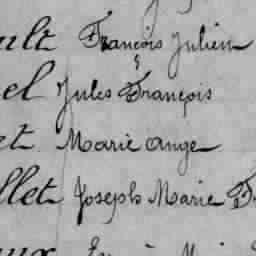 ult François Julien
el Jules François
et Marie Ange
llet Joseph Marie
aux